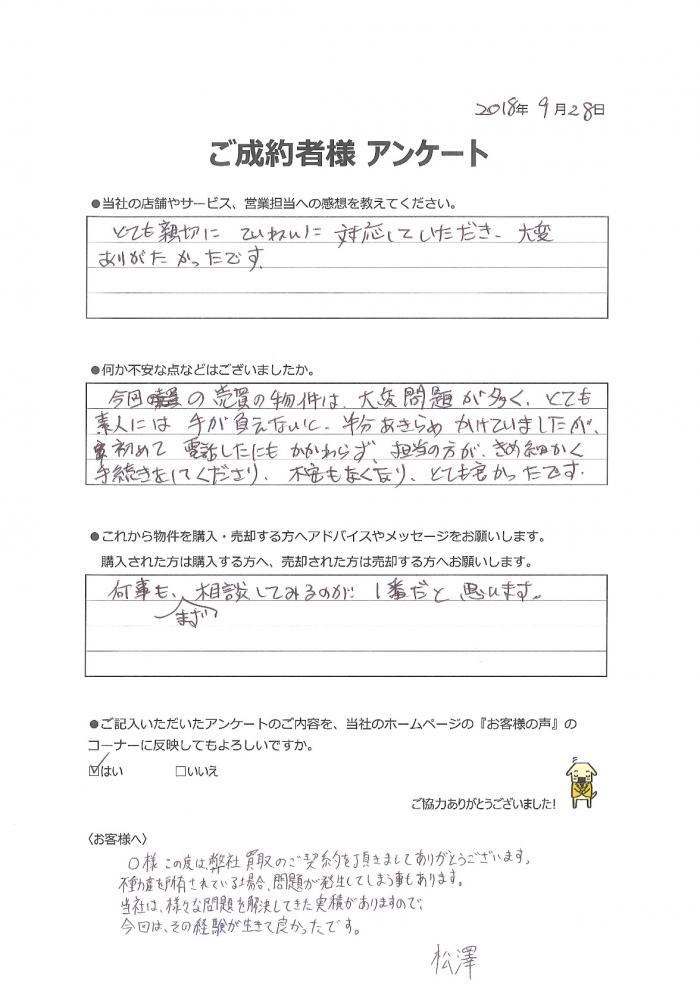 2018年 9月28日
ご成約者様 アンケート
●当社の店舗やサービス、営業担当への感想を教えてください。
とても親切に ていねいに 対応していただき、大変
ありがたかったです。
●何か不安な点などはございましたか。
今回の売買の物件は、大変問題が多く、とても
素人には 手が負えないと、半分あきらめかけていましたが、
初めて 電話したにもかかわらず、担当の方が、きめ細かく
手続きをしてくださり、不安もなくなり、とても良かったです。
●これから物件を購入・売却する方へアドバイスやメッセージをお願いします。
購入された方は購入する方へ、売却された方は売却する方へお願いします。
何事も、まず相談してみるのが 1番だと 思います。
●ご記入いただいたアンケートのご内容を、当社のホームページの『お客様の声』の
コーナーに反映してもよろしいですか。
☑はい □いいえ
ご協力ありがとうございました!
〈お客様へ〉
O様 この度は、弊社買取のご契約を頂きましてありがとうございます。
不動産を所有されている場合、問題が発生してしまう事もあります。
当社は、様々な問題を解決してきた実績がありますので、
今回は、その経験が生きて良かったです。
松澤